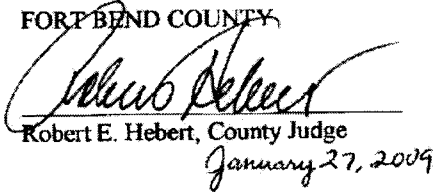 FORT BEND COUNTY
Robert E. Hebert, County Judge
January 27, 2009